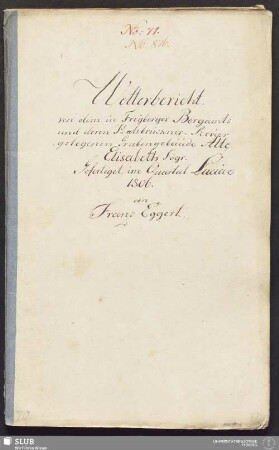 No: 71.
N: 816.
Wetterbericht
von dem in Freyberger Bergamts
und deren Halsbrückner Revier
gelegenen Grubengebäude Alte
Elisabeth Fdgr.
Gefertiget im Quartal Luciae
1806.
von
Franz Eggert.
SLUB
Wir führen Wissen.